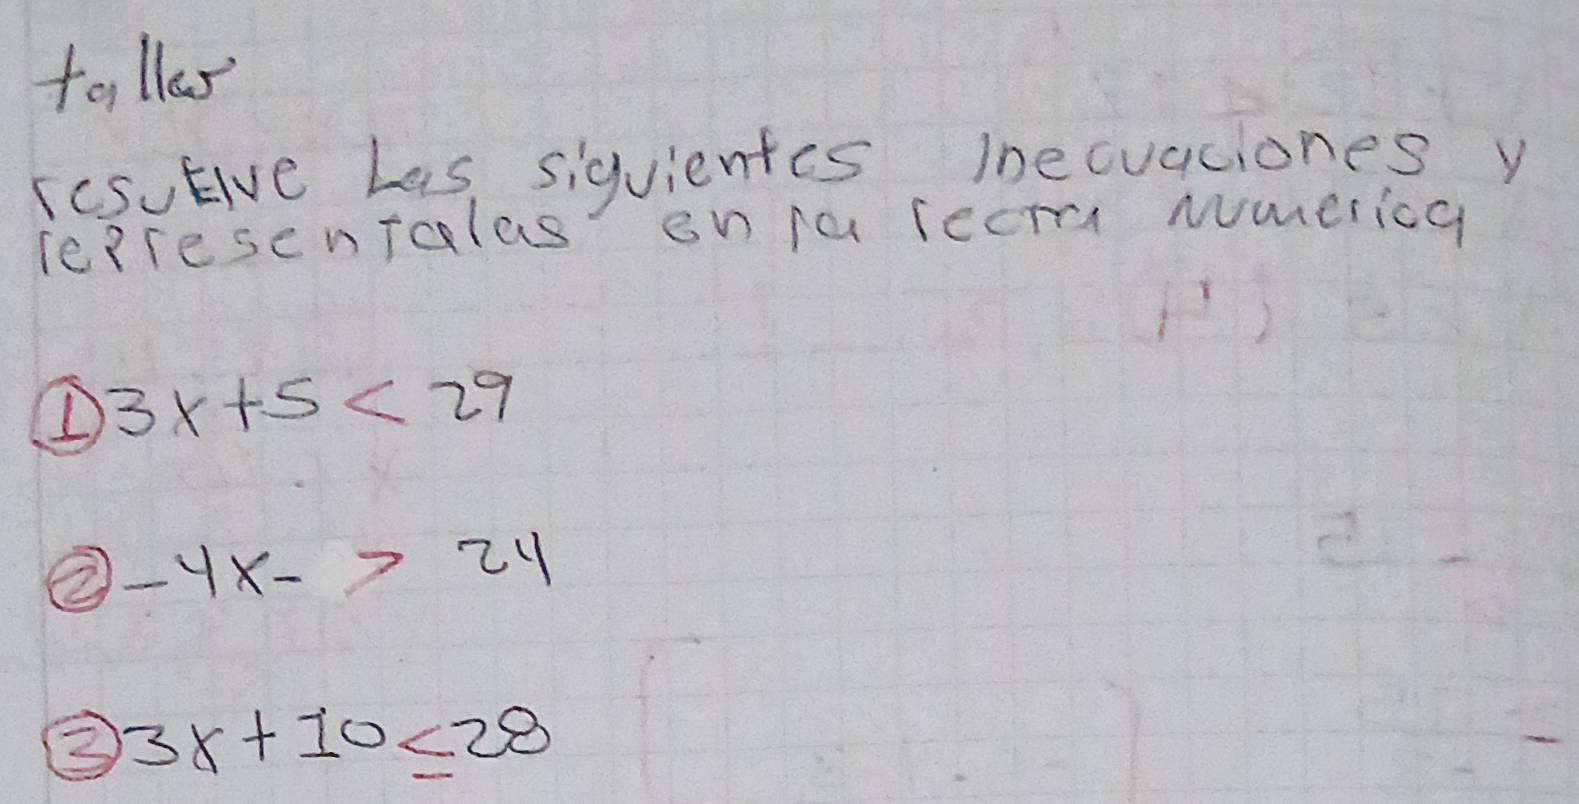 taller
resuelve Las siguientes Inecuaciones y
represéntalas en la recta Numerica
① 3x+5 < 29
② -4x- > 24
③ 3x+10 ≤ 28